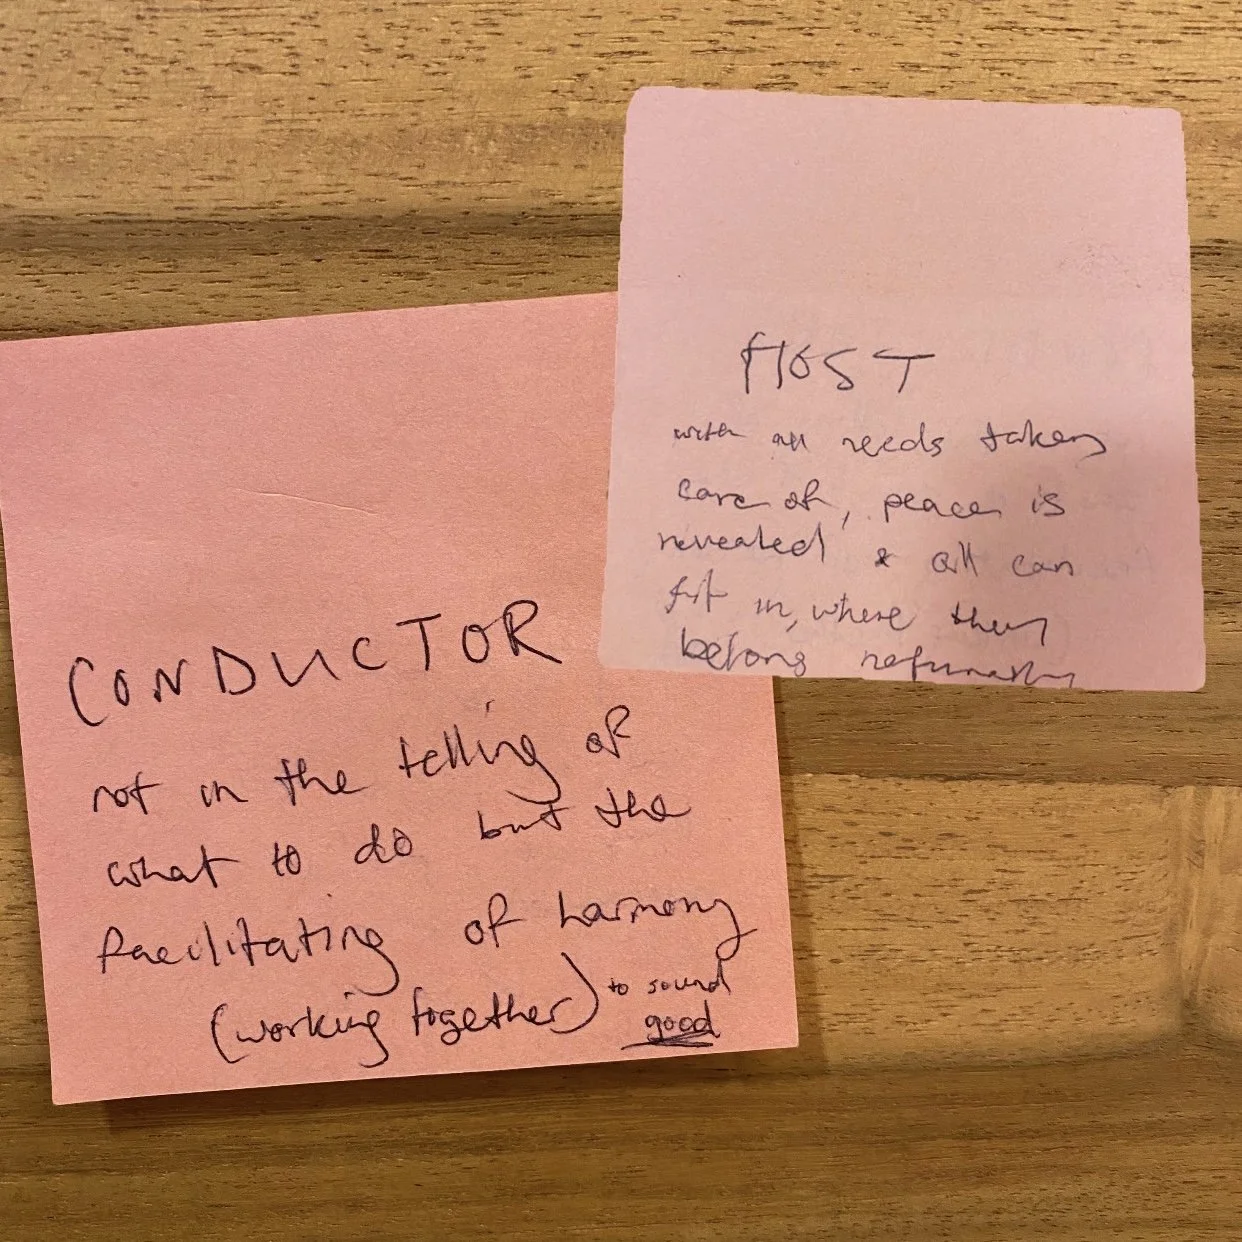 HOST
with all needs taken
care of, peace is
revealed & all can
fit in, where they
belong
CONDUCTOR
not in the telling of
what to do but the
facilitating of harmony
(working together) to sound
good